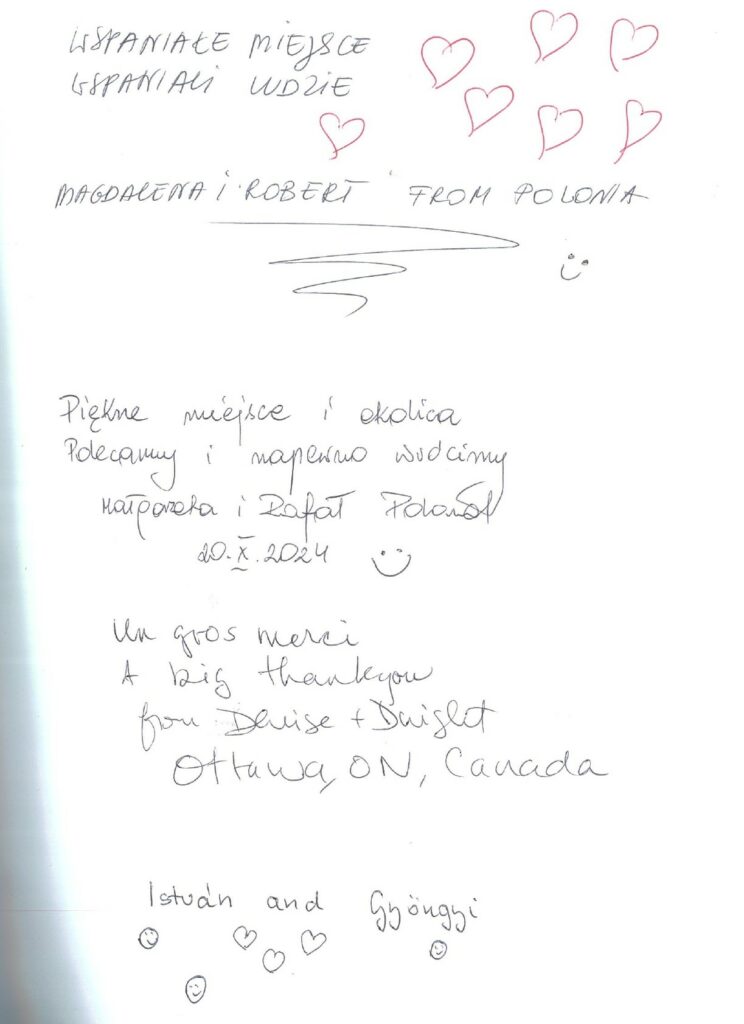 WSPANIAŁE MIEJSCE
WSPANIALI LUDZIE
MAGDALENA I ROBERT FROM POLONIA
Piękne miejsce i okolica
Polecamy i napewno wrócimy
Małgorzata i Rafał
20.X.2024
Un gros merci
A big thankyou
from Denise + Dwight
Ottawa, ON, Canada
István and Gyöngyi